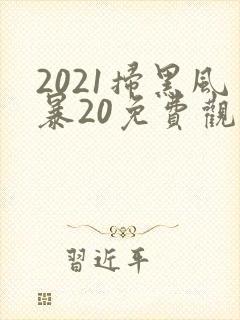 2021掃黑風
暴20免費觀
習近平